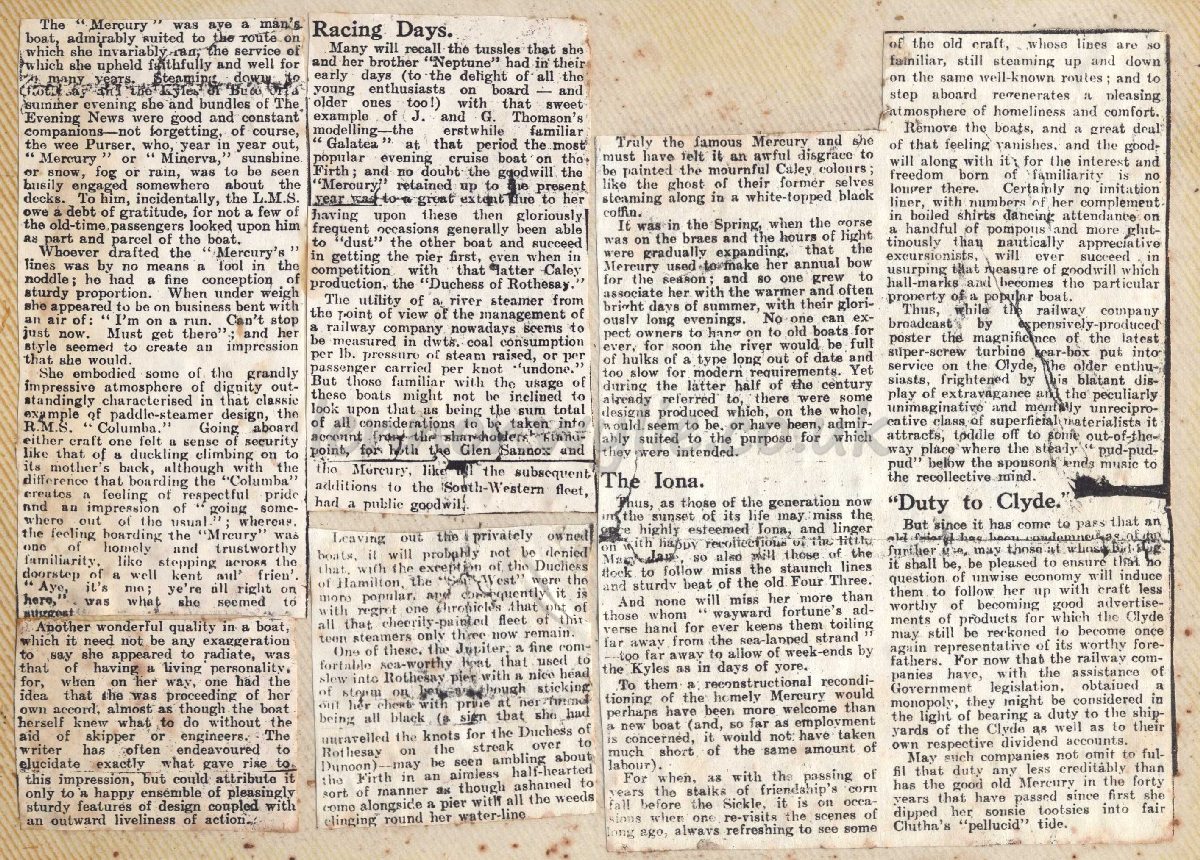 The "Mercury" was aye a man's
boat, admirably suited to the route on
which she invariably ran, the service of
which she upheld faithfully and well for
many years. Steaming down to
and the Kyles of
summer evening she and bundles of The
Evening News were good and constant
companions—not forgetting, of course,
the wee Purser, who, year in year out,
"Mercury" or "Minerva," sunshine
or snow, fog or rain, was to be seen
busily engaged somewhere about the
decks. To him, incidentally, the L.M.S.
owe a debt of gratitude, for not a few of
the old-time passengers looked upon him
as part and parcel of the boat.
Whoever drafted the "Mercury's"
lines was by no means a fool in the
noddle; he had a fine conception of
sturdy proportion. When under weigh
she appeared to be on business bent with
an air of: "I'm on a run. Can't stop
just now. Must get there"; and her
style seemed to create an impression
that she would.
She embodied some of the grandly
impressive atmosphere of dignity out-
standingly characterised in that classic
example of paddle-steamer design, the
R.M.S. "Columba." Going aboard
either craft one felt a sense of security
like that of a duckling climbing on to
its mother's back, although with the
difference that boarding the "Columba"
creates a feeling of respectful pride
and an impression of "going some-
where out of the usual."; whereas,
the feeling boarding the "Mrcury" was
one of homely and trustworthy
familiarity, like stepping across the
doorstep of a well kent aul' frien'.
"Aye, it's me; ye're all right on
here," was what she seemed to
suggest
Another wonderful quality in a boat,
which it need not be any exaggeration
to say she appeared to radiate, was
that of having a living personality,
for, when on her way, one had the
idea that she was proceeding of her
own accord, almost as though the boat
herself knew what to do without the
aid of skipper or engineers. The
writer has often endeavoured to
elucidate exactly what gave rise to
this impression, but could attribute it
only to a happy ensemble of pleasingly
sturdy features of design coupled with
an outward liveliness of action.
Racing Days.
Many will recall the tussles that she
and her brother "Neptune" had in their
early days (to the delight of all the
young enthusiasts on board — and
older ones too!) with that sweet
example of J. and G. Thomson's
modelling—the erstwhile familiar
"Galatea" at that period the most
popular evening cruise boat on the
Firth; and no doubt the goodwill the
"Mercury" retained up to the present
year was to a great extent due to her
having upon these then gloriously
frequent occasions generally been able
to "dust" the other boat and succeed
in getting the pier first, even when in
competition with that latter Caley
production, the "Duchess of Rothesay."
The utility of a river steamer from
the point of view of the management of
a railway company nowadays seems to
be measured in dwts. coal consumption
per lb. pressure of steam raised, or per
passenger carried per knot "undone."
But those familiar with the usage of
these boats might not be inclined to
look upon that as being the sum total
of all considerations to be taken into
account from the shareholders' stand-
point, for both the Glen Sannox and
the Mercury, like all the subsequent
additions to the South-Western fleet,
had a public goodwil.
Leaving out the privately owned
boats, it will probably not be denied
that, with the exception of the Duchess
of Hamilton, the "Sou' West" were the
more popular, and consequently it is
with regret one chronicles that out of
all that cheerily-painted fleet of thir
teen steamers only three now remain.
One of these, the Jupiter, a fine com-
fortable sea-worthy boat that used to
slew into Rothesay pier with a nice head
of steam on though sticking
out her chest with pride at her funnel
being all black (a sign that she had
unravelled the knots for the Duchess of
Rothesay on the streak over to
Dunoon)—may be seen ambling about
the Firth in an aimless half-hearted
sort of manner as though ashamed to
come alongside a pier with all the weeds
clinging round her water-line
Truly the famous Mercury and she
must have felt it an awful disgrace to
be painted the mournful Caley colours;
like the ghost of their former selves
steaming along in a white-topped black
coffin.
It was in the Spring, when the gorse
was on the braes and the hours of light
were gradually expanding, that the
Mercury used to make her annual bow
for the season; and so one grew to
associate her with the warmer and often
bright days of summer, with their glori-
ously long evenings. No one can ex-
pect owners to hang on to old boats for
ever, for soon the river would be full
of hulks of a type long out of date and
too slow for modern requirements. Yet
during the latter half of the century
already referred to, there were some
designs produced which, on the whole,
would seem to be, or have been, admir-
ably suited to the purpose for which
they were intended.
The Iona.
Thus, as those of the generation now
in the sunset of its life may miss the
once highly esteemed Iona, and linger
on with happy recollections of the little
Mary Jane, so also will those of the
flock to follow miss the staunch lines
and sturdy beat of the old Four Three.
And none will miss her more than
those whom "wayward fortune's ad-
verse hand for ever keens them toiling
far away from the sea-lapped strand"
—too far away to allow of week-ends by
the Kyles as in days of yore.
To them a reconstructional recondi-
tioning of the homely Mercury would
perhaps have been more welcome than
a new boat (and, so far as employment
is concerned, it would not have taken
much short of the same amount of
labour).
For when, as with the passing of
years the stalks of friendship's corn
fall before the Sickle, it is on occa-
sions when one re-visits the scenes of
long ago, always refreshing to see some
of the old craft, whose lines are so
familiar, still steaming up and down
on the same well-known routes; and to
step aboard regenerates a pleasing
atmosphere of homeliness and comfort.
Remove the boats, and a great deal
of that feeling vanishes, and the good-
will along with it, for the interest and
freedom born of familiarity is no
longer there. Certainly no imitation
liner, with numbers of her complement
in boiled shirts dancing attendance on
a handful of pompous and more glut-
tinously than nautically appreciative
excursionists, will ever succeed in
usurping that measure of goodwill which
hall-marks and becomes the particular
property of a popular boat.
Thus, while the railway company
broadcast by expensively-produced
poster the magnificence of the latest
super-screw turbine gear-box put into
service on the Clyde, the older enthu-
siasts, frightened by this blatant dis-
play of extravagance and the peculiarly
unimaginative and mentally unrecipro-
cative class of superficial materialists it
attracts, toddle off to some out-of-the-
way place where the steady "pud-pud-
pud" below the sponsons lends music to
the recollective mind.
"Duty to Clyde."
But since it has come to pass that an
old friend has been condemned as of no
further use, may those at whose bidding
it shall be, be pleased to ensure that no
question of unwise economy will induce
them to follow her up with craft less
worthy of becoming good advertise-
ments of products for which the Clyde
may still be reckoned to become once
again representative of its worthy fore-
fathers. For now that the railway com-
panies have, with the assistance of
Government legislation, obtained a
monopoly, they might be considered in
the light of bearing a duty to the ship-
yards of the Clyde as well as to their
own respective dividend accounts.
May such companies not omit to ful-
fil that duty any less creditably than
has the good old Mercury in the forty
years that have passed since first she
dipped her sonsie tootsies into fair
Clutha's "pellucid" tide.